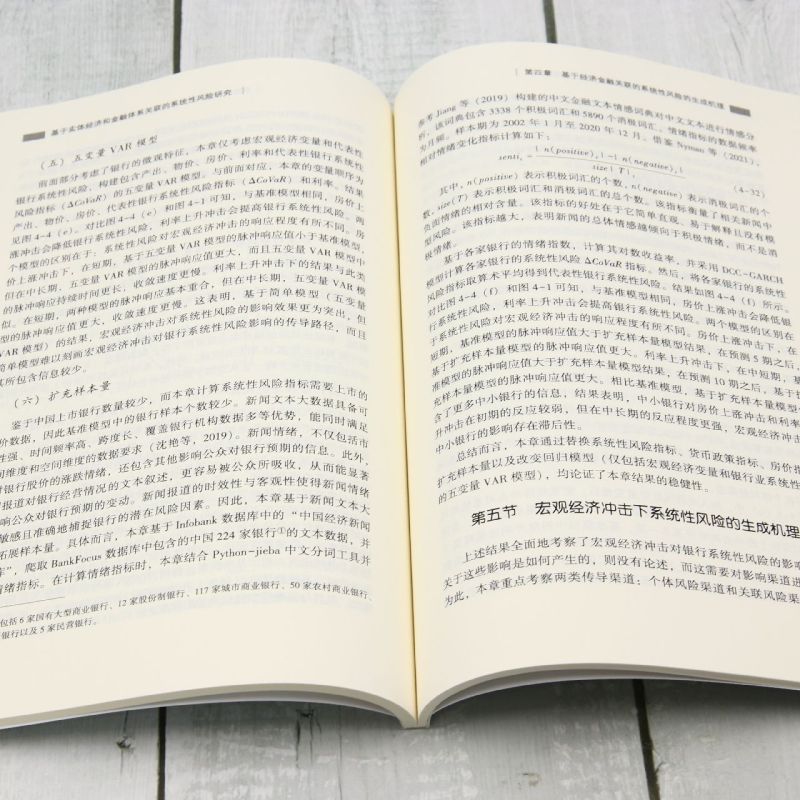 基于实体经济和金融体系关联的系统性风险研究
（五）五变量 VAR 模型
前面部分考虑了银行的微观特征，本章仅考虑宏观经济变量和代表性
银行系统性风险，构建包含产出、物价、房价、利率和代表性银行系统性
风险指标（ΔCoVaR）的五变量 VAR 模型。与前面对应，本章的变量顺序为
产出、物价、房价、代表性银行系统性风险指标（ΔCoVaR）和利率。结果
见图 4-4（e）。对比图 4-4（e）和图 4-1 可知，与基准模型相同，房价上
涨冲击会降低银行系统性风险，利率上升冲击会提高银行系统性风险。两
个模型的区别在于：系统性风险对宏观经济冲击的响应程度有所不同。房
价上涨冲击下，在短期，基于五变量 VAR 模型的脉冲响应值小于基准模型，
但在中长期，五变量 VAR 模型的脉冲响应值更大，而且五变量 VAR 模型中
的脉冲响应持续时间更长，收敛速度更慢。利率上升冲击下的结果与此类
似。在短期，两种模型的脉冲响应基本重合，但在中长期，五变量 VAR 模
型的脉冲响应值更大，收敛速度更慢。这表明，基于简单模型（五变量
VAR 模型）的结果，宏观经济冲击对系统性风险的影响效果更为突出，但
简单模型难以刻画宏观经济冲击对银行系统性风险影响的传导路径，而且
其所包含信息较少。
（六）扩充样本量
鉴于中国上市银行数量较少，而本章计算系统性风险指标需要上市的
价数据，因此基准模型中的银行样本个数较少。新闻文本大数据具备可
性强、时间频率高、跨度长、覆盖银行机构数据多等优势，能同时满足
间维度和空间维度的数据要求（沈艳等，2019）。新闻情绪，不仅包括市
对银行股价的涨跌情绪，还包含其他影响公众对银行预期的信息。此外，
闻报道对银行经营情况的文本叙述，更容易被公众所吸收，从而能显著
响公众对银行预期的变动。新闻报道的时效性与客观性使得新闻情绪
敏感且准确地捕捉银行的潜在风险因素。因此，本章基于新闻文本大
拓展样本量。具体而言，本章基于 Infobank 数据库中的“中国经济新闻
库”，爬取 BankFocus 数据库中包含的中国 224 家银行①的文本数据，并
情绪指标。在计算情绪指标时，本章结合 Python-jieba 中文分词工具并
包括 6 家国有大型商业银行、12 家股份制银行、117 家城市商业银行、50 家农村商业银行、
银行以及 5 家民营银行。
第四章 基于经济金融关联的系统性风险的生成机理
参考 Jiang 等（2019）构建的中文金融文本情感词典对中文文本进行情感分
析，该词典包含 3338 个积极词汇和 5890 个消极词汇。情绪指标的数据频率
为月频，样本期为 2002 年 1 月至 2020 年 12 月。借鉴 Nyman 等（2021），
相对情绪变化指标计算如下：
senti = |n(positive)|-|n(negative)| / size(T) (4-32)
其中，n(positive) 表示积极词汇的个数，n(negative) 表示消极词汇的个
数，size(T) 表示积极词汇和消极词汇的总个数。该指标衡量了相关新闻中
负面情绪的相对含量。该指标的好处在于它简单直观、易于解释且没有模
型风险。该指标越大，表明新闻的总体情感越倾向于积极情绪，而不是消
极情绪。
基于各家银行的情绪指数，计算其对数收益率，并采用 DCC-GARCH
模型计算各家银行的系统性风险 ΔCoVaR 指标。然后，将各家银行的系统性
风险指标取算术平均得到代表性银行系统性风险。结果如图 4-4（f）所示。
对比图 4-4（f）和图 4-1 可知，与基准模型相同，房价上涨冲击会降低银
行系统性风险，利率上升冲击会提高银行系统性风险。两个模型的区别在
于系统性风险对宏观经济冲击的响应程度有所不同。房价上涨冲击下，在
短期，基准模型的脉冲响应值大于扩充样本量模型结果，在预测 5 期之后，
基于扩充样本量模型的脉冲响应值更大。利率上升冲击下，在中短期，基
准模型的脉冲响应值大于扩充样本量模型结果，在预测 10 期之后，基于
扩充样本量模型的脉冲响应值更大。相比基准模型，基于扩充样本量模型
含了更多中小银行的信息，结果表明，中小银行对房价上涨冲击和利率
升冲击在初期的反应较弱，但在中长期的反应程度更强，宏观经济冲击
中小银行的影响存在滞后性。
总结而言，本章通过替换系统性风险指标、货币政策指标、房价指
扩充样本量以及改变回归模型（仅包括宏观经济变量和银行业系统性
的五变量 VAR 模型），均论证了本章结果的稳健性。
第五节 宏观经济冲击下系统性风险的生成机理
上述结果全面地考察了宏观经济冲击对银行系统性风险的影响
关于这些影响是如何产生的，则没有论述，而这需要对影响渠道进
为此，本章重点考察两类传导渠道：个体风险渠道和关联风险渠